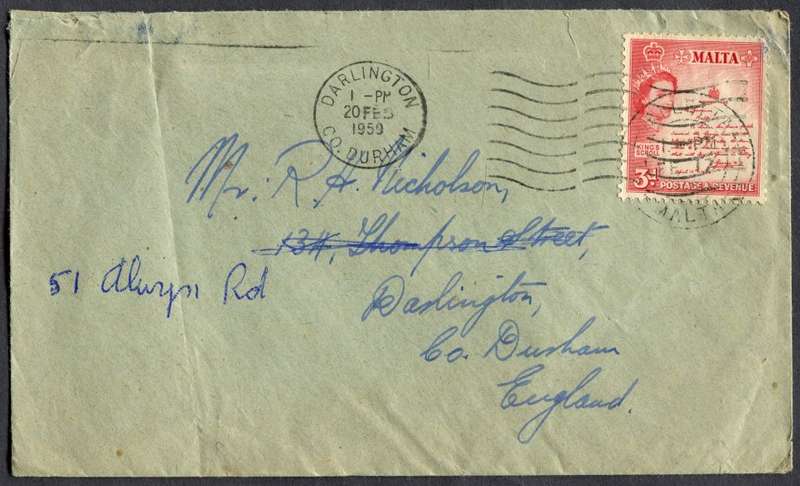 MALTA
KING'S
SCROLL
3D
POSTAGE & REVENUE
MALTA
DARLINGTON
1 - PM
20 FEB
1959
CO. DURHAM
Mr. R. H. Nicholson,
134, Thompson Street,
51 Alwyn Rd
Darlington,
Co. Durham
England.